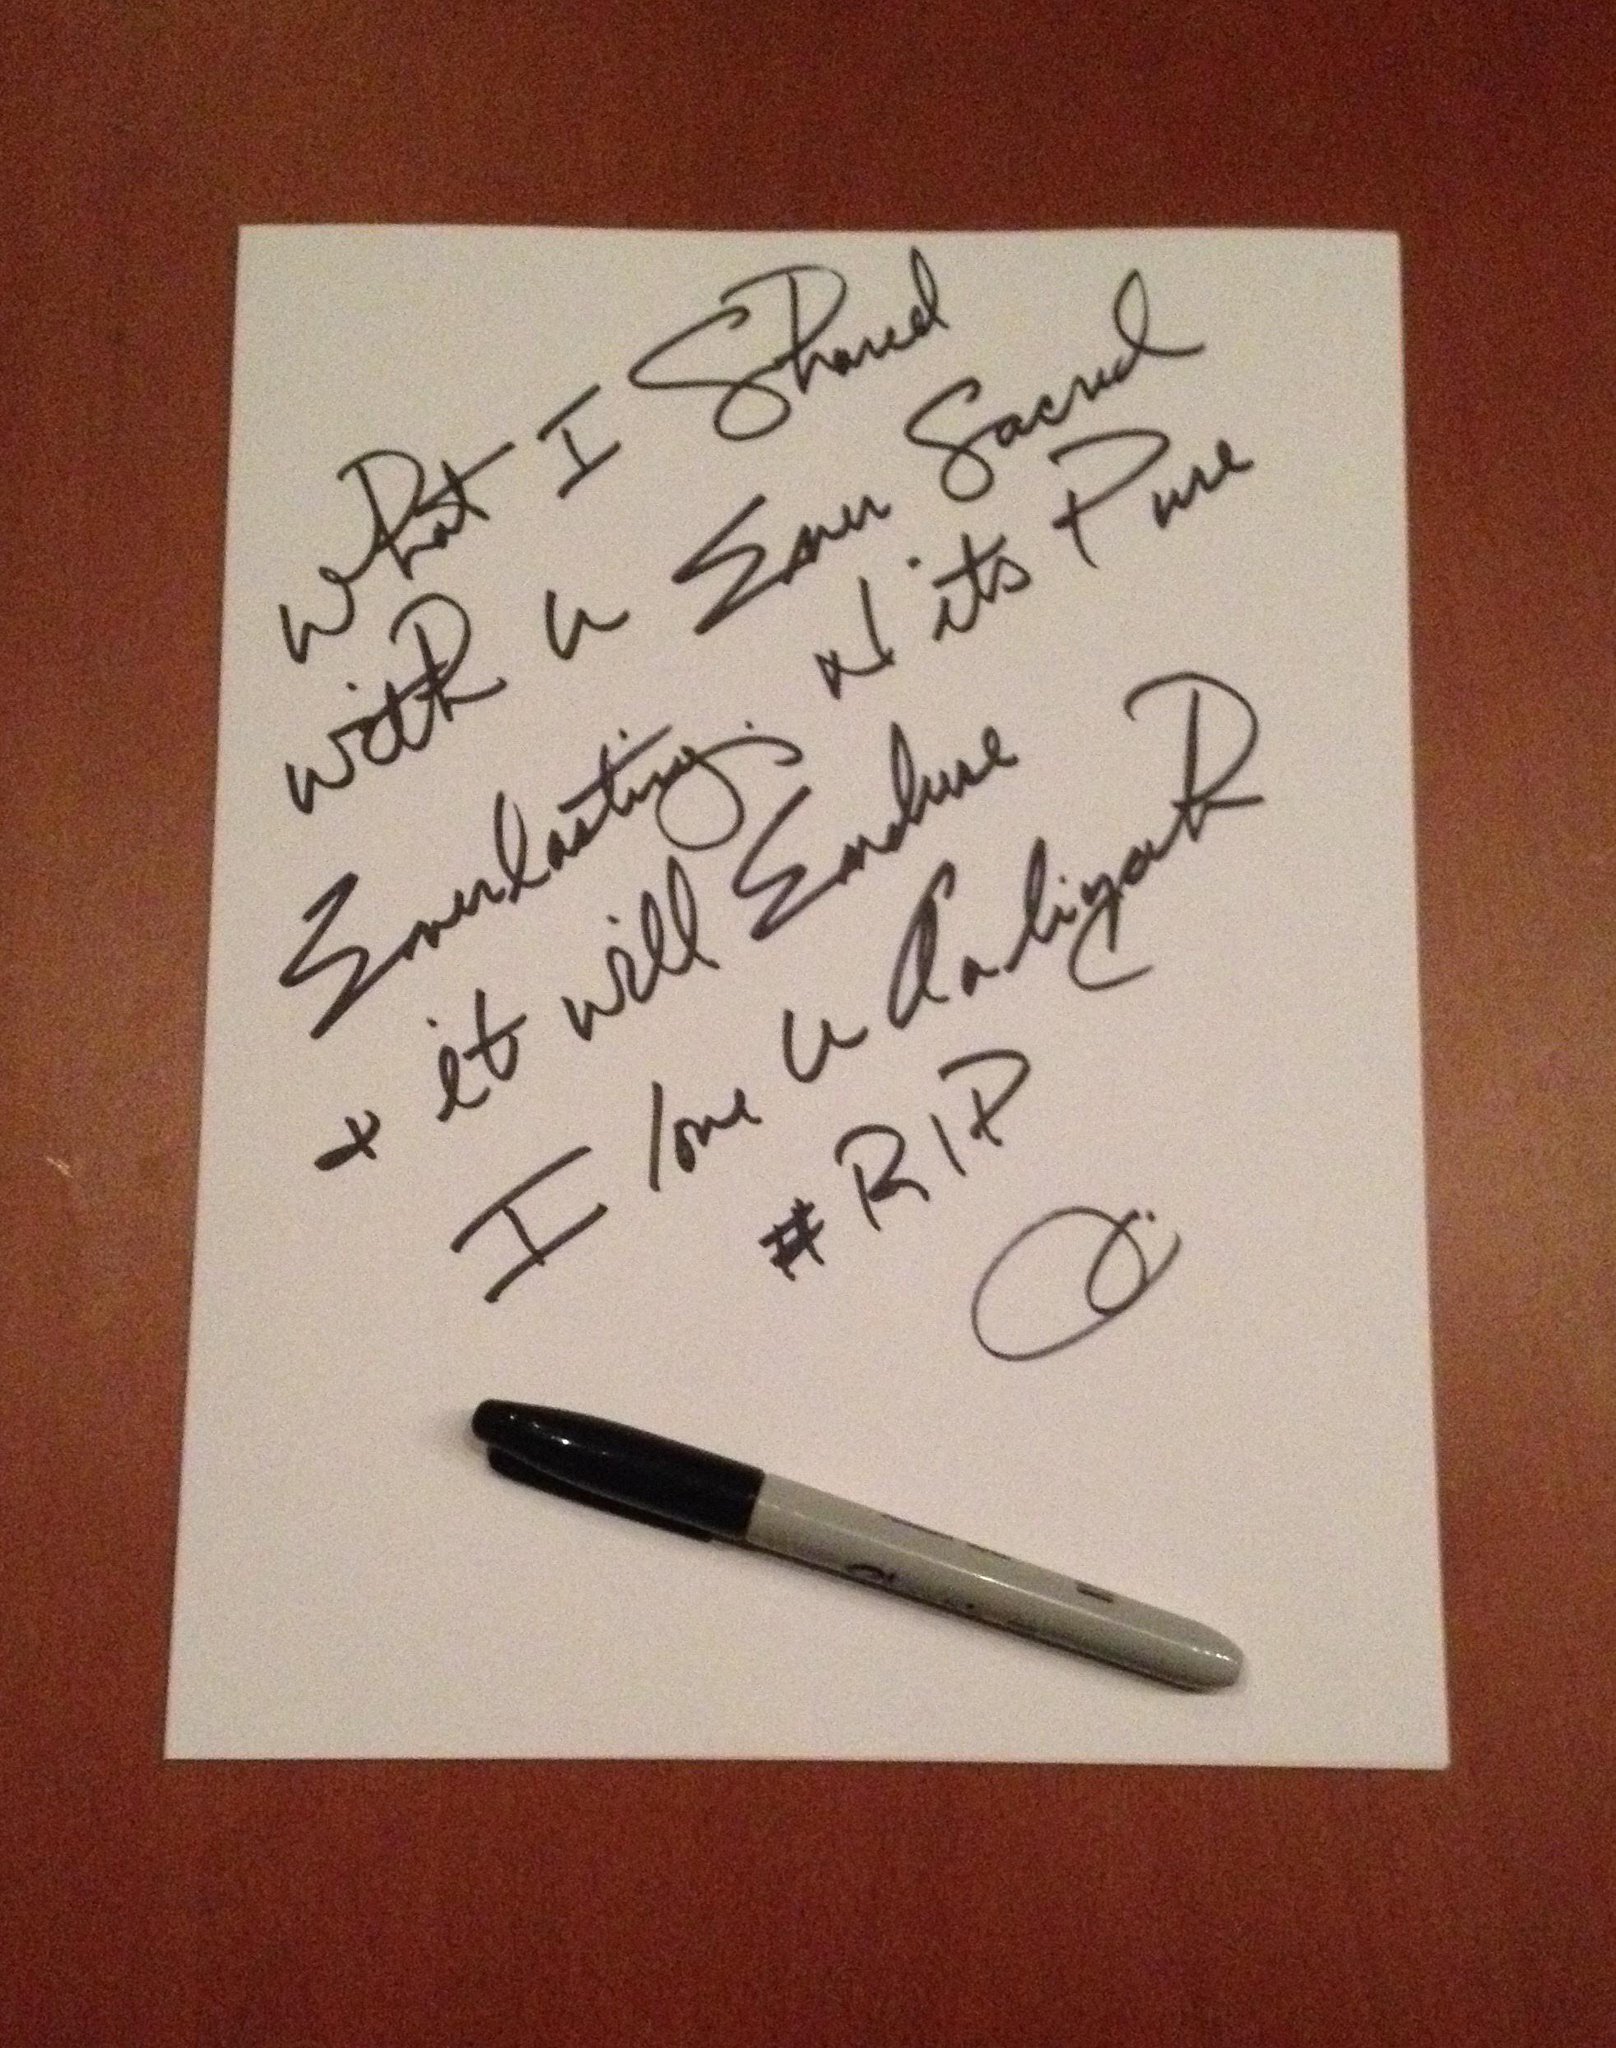 What I Shared
with u Ever Sacred
Everlasting. N its Pure
+ it will Endure
I love u Aaliyah
#RIP